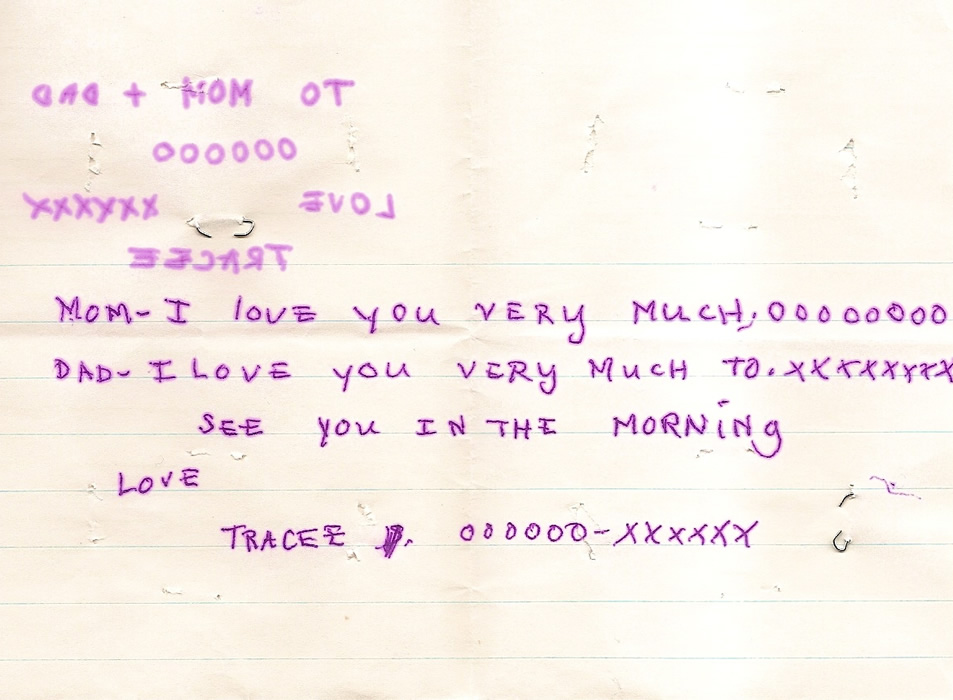 TO MOM + DAD
OOOOOO
LOVE XXXXXX
TRACEE
MOM- I lOVE YOU VERY MUCH, OOOOOOOO
DAD- I LOVE YOU VERY MUCH TO. XXXXXXXX
SEE YOU IN THE MORNiNg
LOVE
TRACEE OOOOOO-XXXXXX